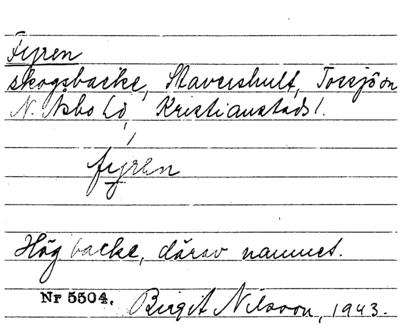 Fyren
skogsbacke, Stavershult, Tossjöen
N. Åsbo hd, Kristianstads l.
fyren
Hög backe, därav namnet.
Nr 5504. Birgit Nilsson, 1943.